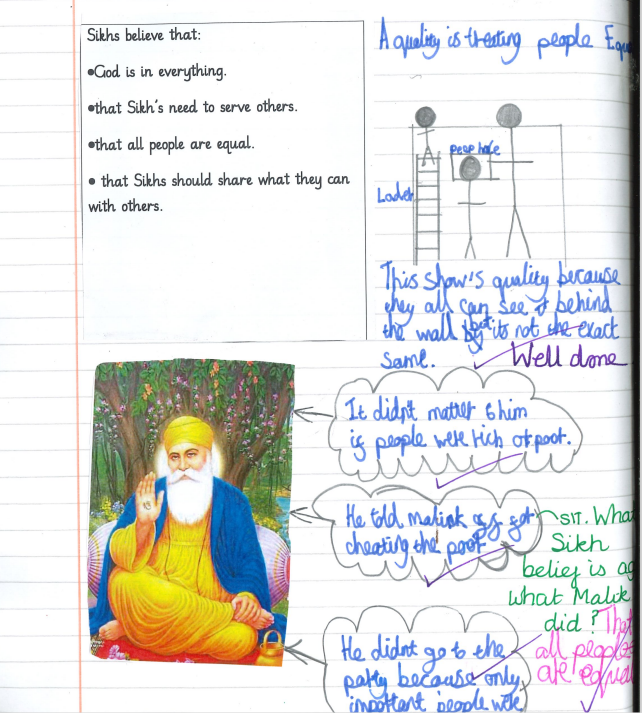 Sikhs believe that:
•God is in everything.
•that Sikh's need to serve others.
•that all people are equal.
• that Sikhs should share what they can
with others.
Aquality is treating people Equ
peep hole
Lader
This show's quality because
they all can see behind
the wall but its not the exact
same.
Well done
It didn't matter to him
if people were rich or poor.
He told malik off for
cheating the poor
SIT. What
Sikh
belief is ag
what Malik
did? The
all people
are equal
He didnt go to the
party because only
important people were